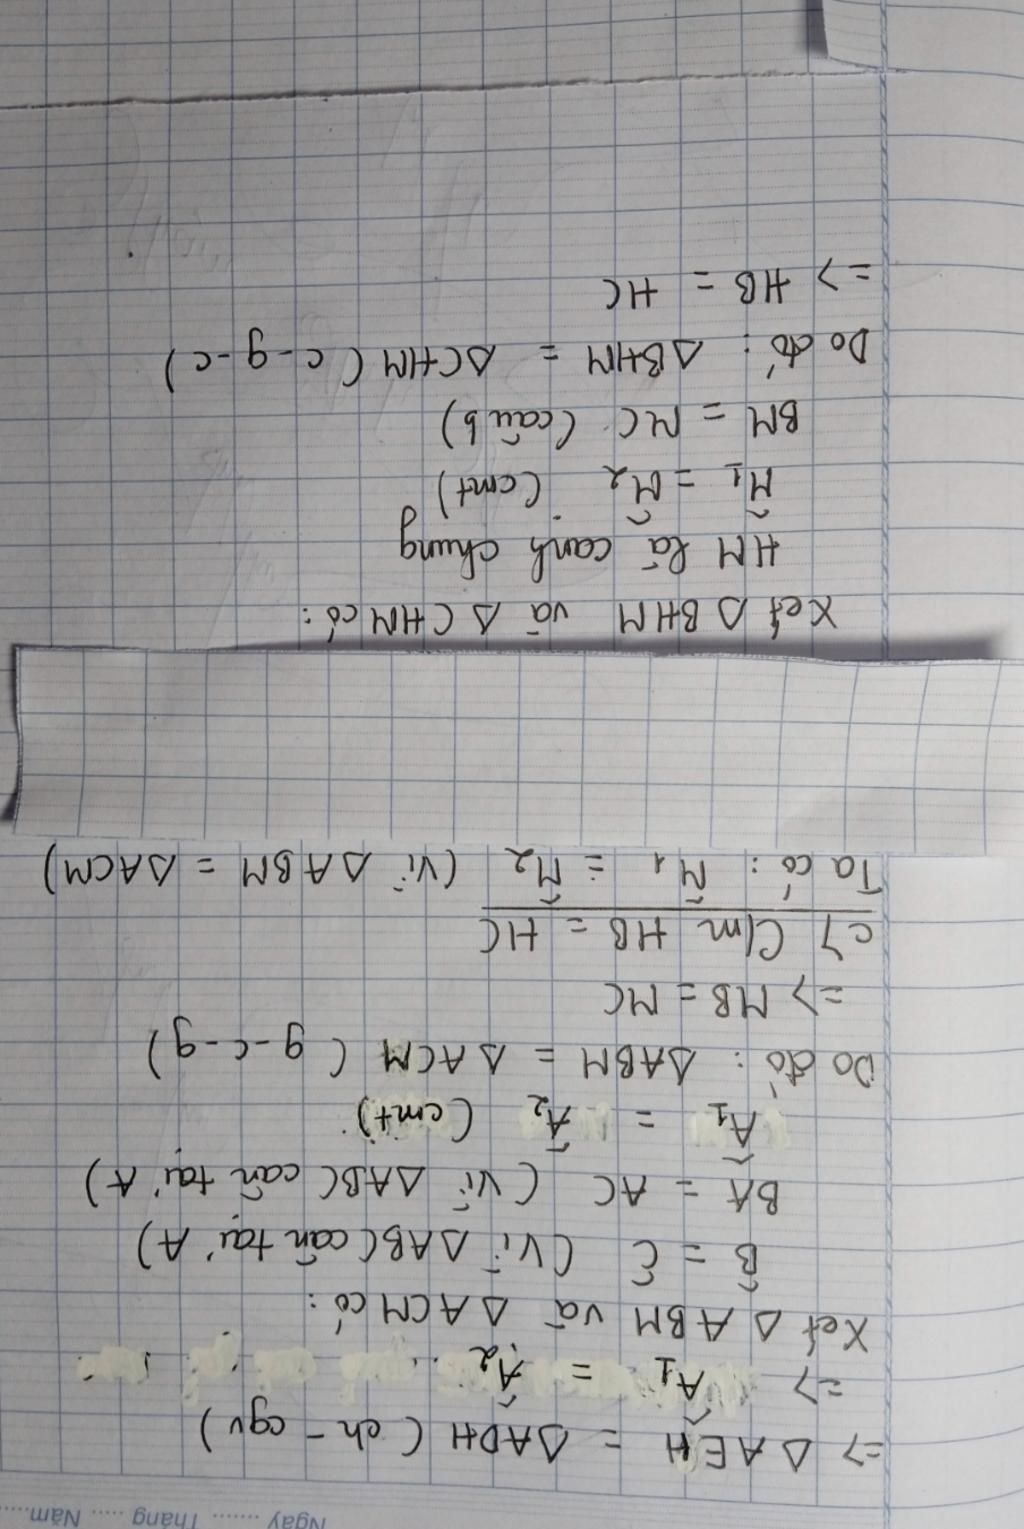 Ngày ....... Tháng ..... Năm.....
=> Δ AEH = ΔADH (ch - cgv)
=> Â1 = Â2
Xét Δ ABM và Δ ACM có:
B̂ = Ĉ (Vì ΔABC cân tại A)
BA = AC (Vì ΔABC cân tại A)
Â1 = Â2 (cmt)
Do đó: ΔABM = ΔACM (g-c-g)
=> MB = MC
c) C/m HB = HC
Ta có: M̂1 = M̂2 (Vì ΔABM = ΔACM)
Xét Δ BHM và Δ CHM có:
HM là cạnh chung
M̂1 = M̂2 (cmt)
BM = MC (câu b)
Do đó: ΔBHM = ΔCHM (c-g-c)
=> HB = HC